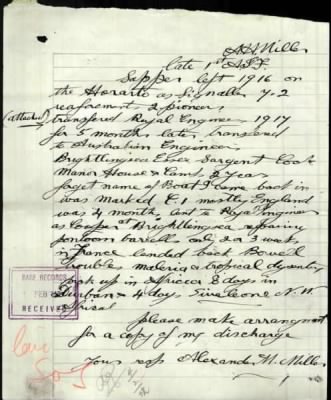 A. Miller
late 1st A I F
Sapper left 1916 on
the Horarto as Signaller 7-2
reaforsments 2 pioneers
(attached) transfered Royal Engineer 1917
for 5 months later transfered
to Australian Engineers
Brightlingsea Essex Sargent Cook
Manor House & Camp 2 years
forget name of Boat I came back in
was marked C.1 mostly England
was 4 months lent to Royal Engineers
as Cooper at Brightlingsea repairing
pontoon barrells only 2 or 3 weeks
in France landed back Bowell
troubles maleria & tropical dysentry
took up in Africa 8 days in
Durban & 4 days Siveleone N. W.
africa
please make arrangment
for a copy of my discharge
Yours resp Alexander M. Miller
BASE RECORDS
FEB
RECEIVED